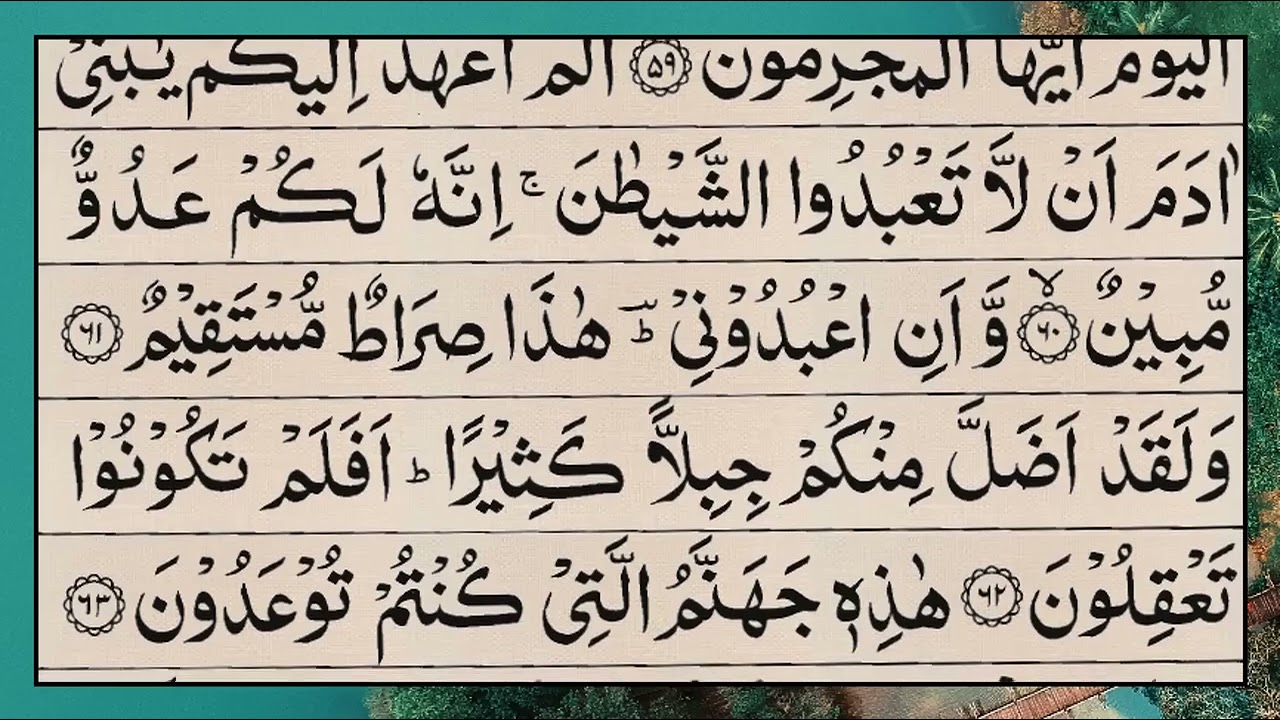 الیوم ایها المجرمون ﴿۵۹﴾ الم اعهد الیکم یٰبنیۤ
اٰدَمَ اَنۡ لَّا تَعۡبُدُوا الشَّیۡطٰنَ ۚ اِنَّهٗ لَکُمۡ عَدُوٌّ
مُّبِیۡنٌ ﴿ۙ۶۰﴾ وَّ اَنِ اعۡبُدُوۡنِیۡ ؕؔ هٰذَا صِرَاطٌ مُّسۡتَقِیۡمٌ ﴿۶۱﴾
وَلَقَدۡ اَضَلَّ مِنۡکُمۡ جِبِلًّا کَثِیۡرًا ؕ اَفَلَمۡ تَکُوۡنُوۡا
تَعۡقِلُوۡنَ ﴿۶۲﴾ هٰذِهٖ جَهَنَّمُ الَّتِیۡ کُنۡتُمۡ تُوۡعَدُوۡنَ ﴿۶۳﴾